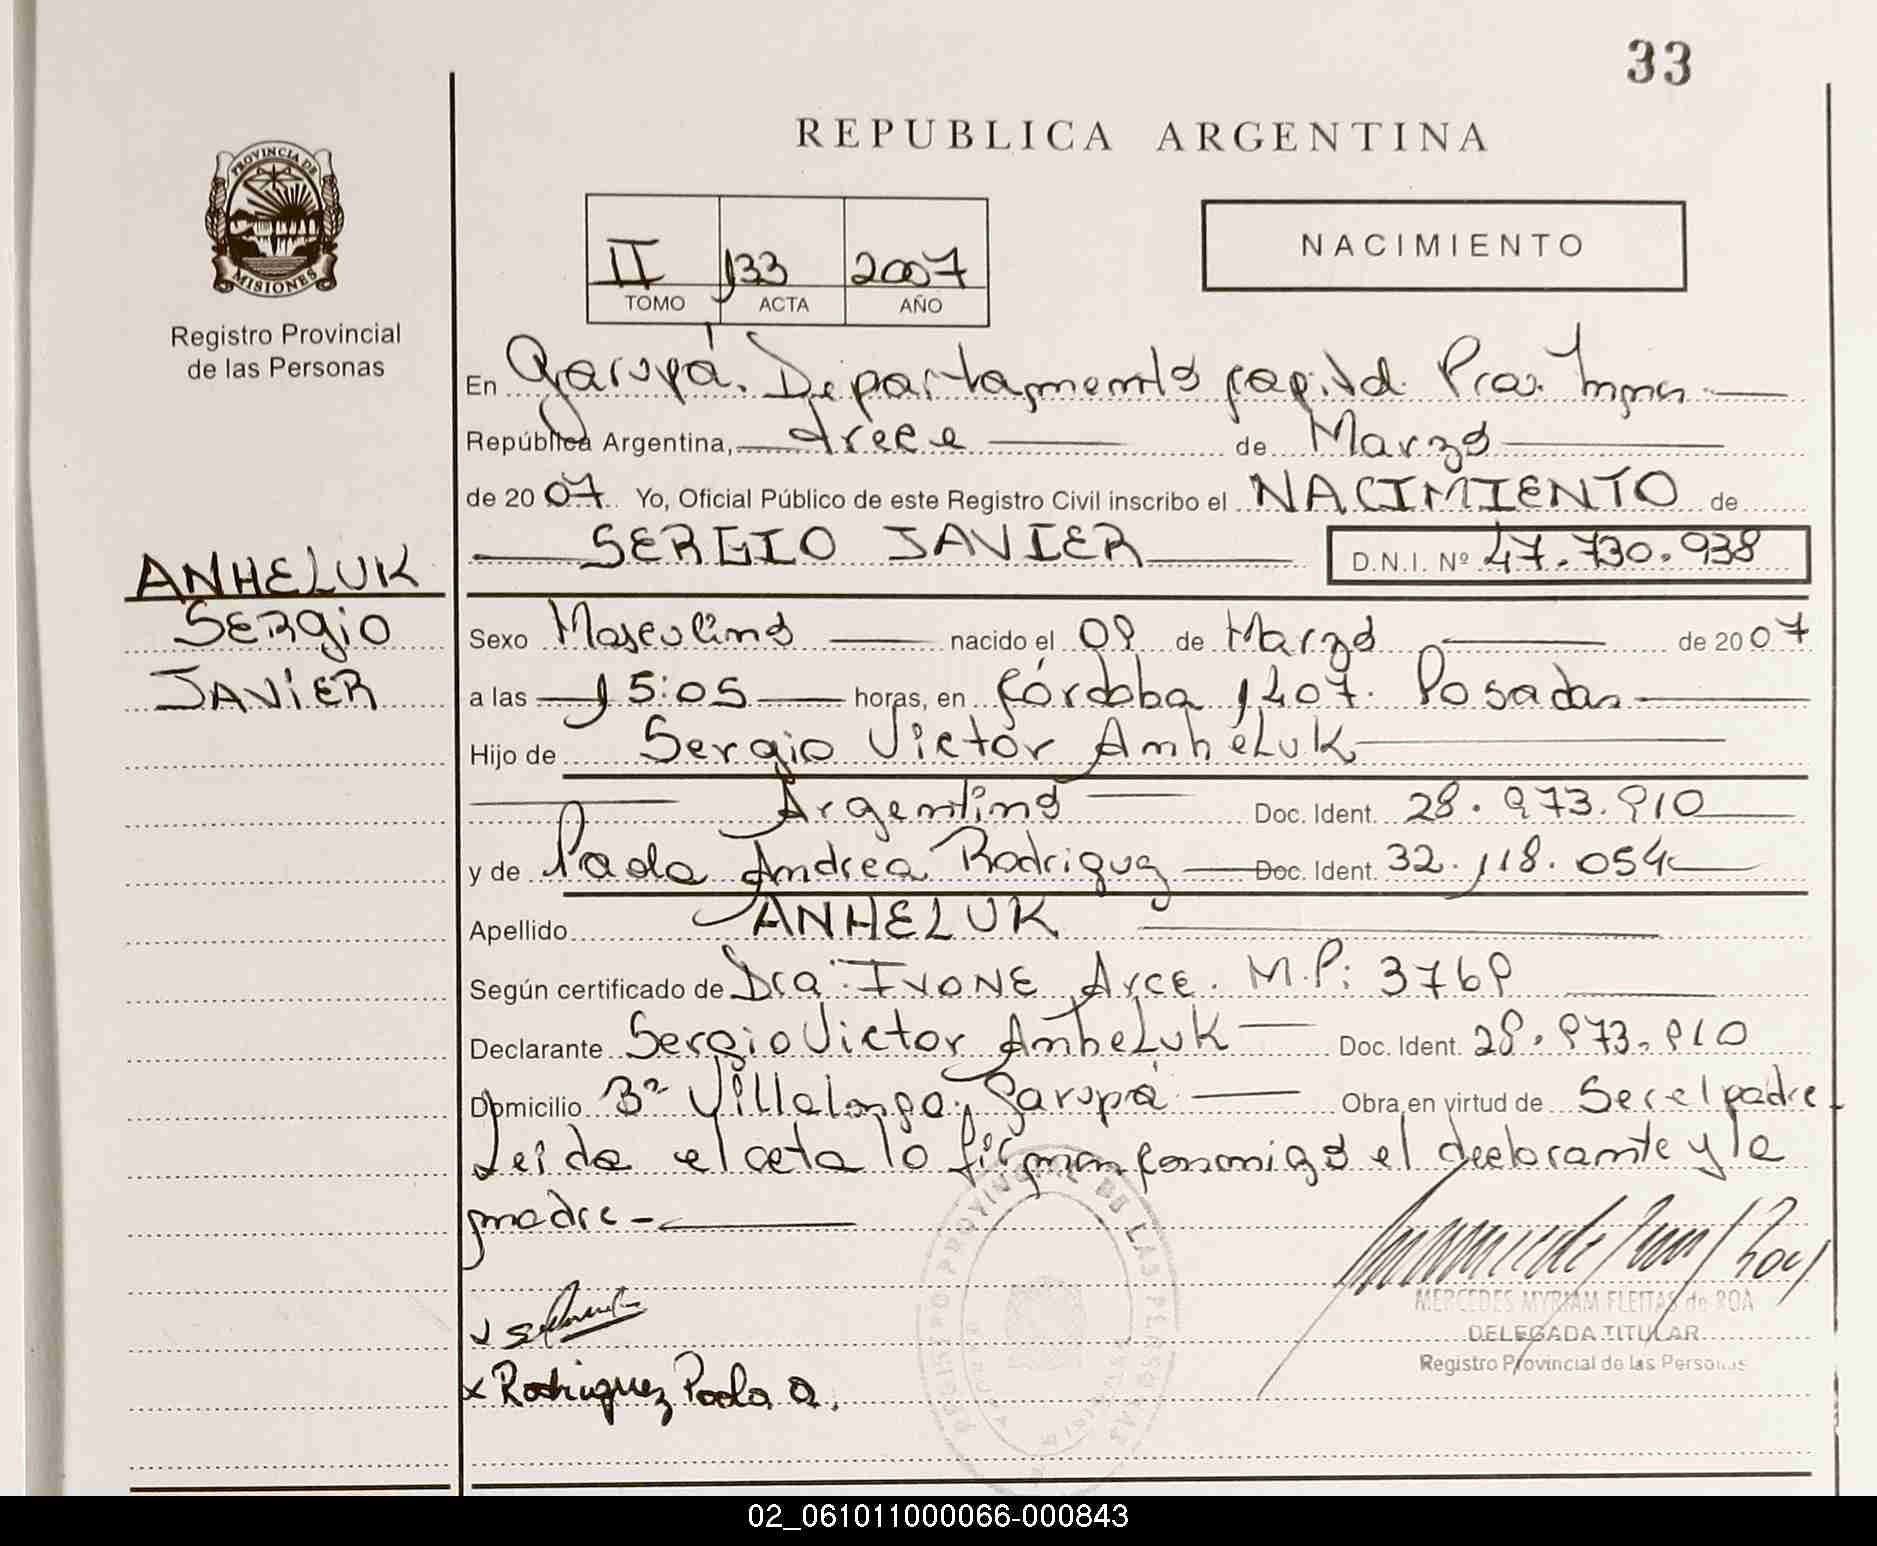 33
REPUBLICA ARGENTINA
PROVINCIA DE
MISIONES
Registro Provincial
de las Personas
II 133 2007
TOMO ACTA AÑO
NACIMIENTO
En Garupá. Departamento Capital. Pcia. Mnes.
República Argentina, trece de Marzo
de 2007. Yo, Oficial Público de este Registro Civil inscribo el NACIMIENTO de
SERGIO JAVIER D.N.I. Nº 47.730.938
ANHELUK
SERgio
JAViER
Sexo Masculino nacido el 09 de Marzo de 2007
a las 15:05 horas, en Córdoba 1207. Posadas
Hijo de Sergio Victor AnheLuK
Argentino Doc. Ident. 28.973.910
y de Paola Andrea Rodriguez Doc. Ident. 32.118.054
Apellido ANHELUK
Según certificado de Dra. IVONE Arce. M.P: 3769
Declarante Sergio Victor AnheLuK Doc. Ident. 28.973.910
Domicilio Bº Villalonga, Garupá Obra en virtud de Ser el padre
Leida el acta lo firman conmigo el declarante y la
madre-
MERCEDES MYRIAM FLEITAS de ROA
DELEGADA TITULAR
Registro Provincial de las Personas
x Rodriguez Paola A.
REGISTRO PROVINCIAL DE LAS PERSONAS
02_061011000066-000843